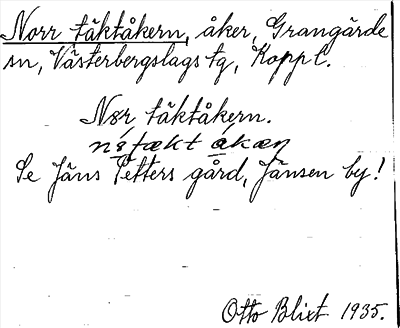 Norr täktåkern, åker, Grangärde
sn, Västerbergslags tg, Koppl.
Nør täktåkern.
Se Jäns Petters gård, Jänsen by!
Otto Blixt 1935.